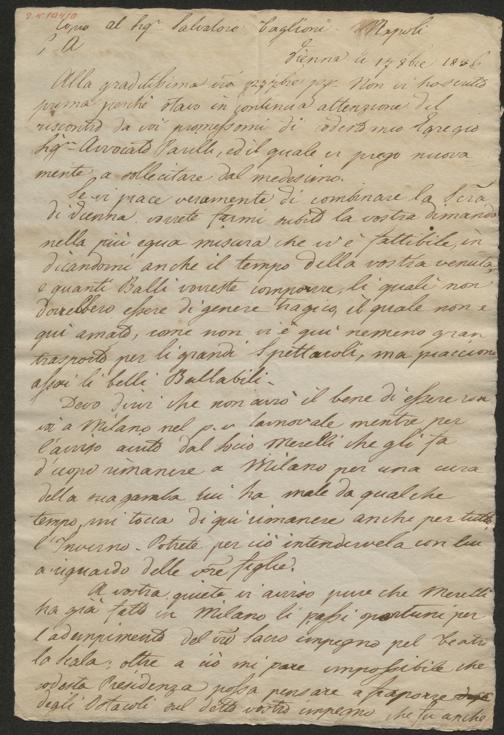 Copia al Sigr Salvatore Taglioni Napoli
P. A.
Vienna li 17 8bre 1836
Alla graditissima Non vi ho scritto
prima perchè stavo in continua attenzione del
riscontro da voi promessomi di codesto mio Egregio
Sigr Avvocato Parelli, ed il quale vi prego nuova
mente a sollecitare dal medesimo.
Se vi piace veramente di combinare la
di Vienna vorrete farmi subito la vostra dimanda
nella più equa misura che vi è fattibile, in
dicandomi anche il tempo della vostra venuta,
e quanti Balli vorreste comporre, li quali non
dovrebbero essere di genere tragico, il quale non è
qui amato, come non vi è qui nemeno gran
trasporto per li grandi Spettacoli, ma piacciono
assai li belli Ballabili.
Devo dirvi che non avrò il bene di essere con
voi a Milano nel p. v. Carnovale mentre per
l'avviso avuto dal socio Merelli che gli fa
d'uopo rimanere a Milano per una cura
della sua gamba cui ha male da qualche
tempo, mi tocca di qui rimanere anche per tutto
l'Inverno. Potrete per ciò intendervela con lui
a riguardo delle vre figlie.
A vostra quiete vi avviso pure che Merelli
ha già fatto in Milano li passi oportuni per
l'adempimento del vro sacro impegno pel Teatro
la Scala; oltre a ciò mi pare impossibile che
codesta Presidenza possa pensare a fraporre
degli Ostacoli sul detto vostro impegno che fu anche